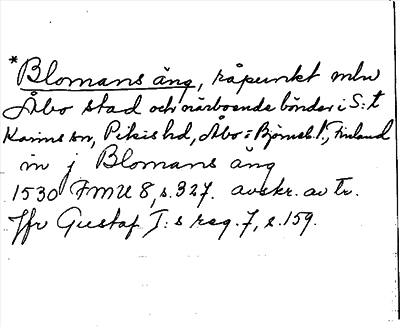 *Blomans äng, råpunkt mln
Åbo stad och närboende bönder i S:t
Karins sn, Pikis hd, Åbo-Björneb. l., Finland
in j Blomans äng
1530 FMU 8, s. 327. avskr. av tr.
Jfr Gustaf I:s reg. 7, s. 159.